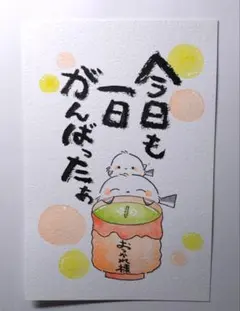 今日も
一日
がんばったぁ
おつかれ様